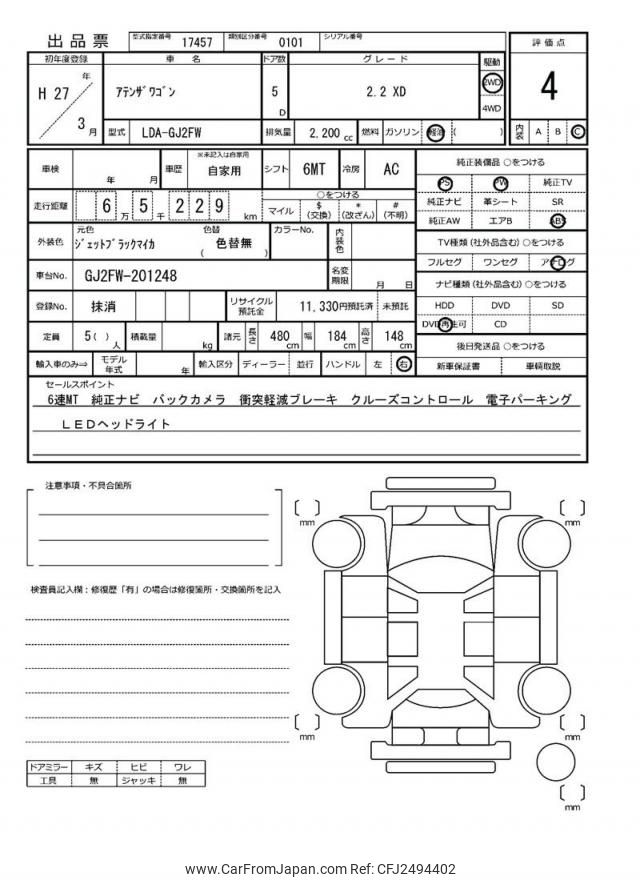 出品票
型式指定番号 17457 類別区分番号 0101 シリアル番号
評価点
初年度登録 車名 ドア数 グレード 駆動
H 27 年 3 月
ｱﾃﾝｻﾞﾜｺﾞﾝ 5 D 2.2 XD 2WD 4WD
4
型式 LDA-GJ2FW 排気量 2,200 cc 燃料 ガソリン 軽油 ( )
内装 A B C
車検 年 月 車歴 ※未記入は自家用 自家用 シフト 6MT 冷房 AC
純正装備品 ○をつける
PS PW 純正TV
純正ナビ 革シート SR
純正AW エアB ABS
走行距離 6 万 5 千 2 2 9 km
○をつける
マイル $(交換) *(改ざん) #(不明)
外装色 元色 ｼﾞｪｯﾄﾌﾞﾗｯｸﾏｲｶ 色替 ( 色替無 ) カラーNo. 内装色
TV種類 (社外品含む) ○をつける
フルセグ ワンセグ アナログ
車台No. GJ2FW-201248 名変期限 月 日
ナビ種類 (社外品含む) ○をつける
HDD DVD SD
DVD再生可 CD
登録No. 抹消 リサイクル預託金 11,330円預託済 未預託
定員 5( ) 人 積載量 kg 諸元 長さ 480 cm 幅 184 cm 高さ 148 cm
後日発送品 ○をつける
新車保証書 車輌取説
輸入車のみ⇒ モデル年式 年 輸入区分 ディーラー 並行 ハンドル 左 右
セールスポイント
6速MT 純正ナビ バックカメラ 衝突軽減ブレーキ クルーズコントロール 電子パーキング
ＬＥＤヘッドライト
注意事項・不具合箇所
検査員記入欄：修復歴「有」の場合は修復箇所・交換箇所を記入
mm
mm
mm
mm
mm
ドアミラー キズ ヒビ ワレ
工具 無 ジャッキ 無
www.CarFromJapan.com Ref: CFJ2494402